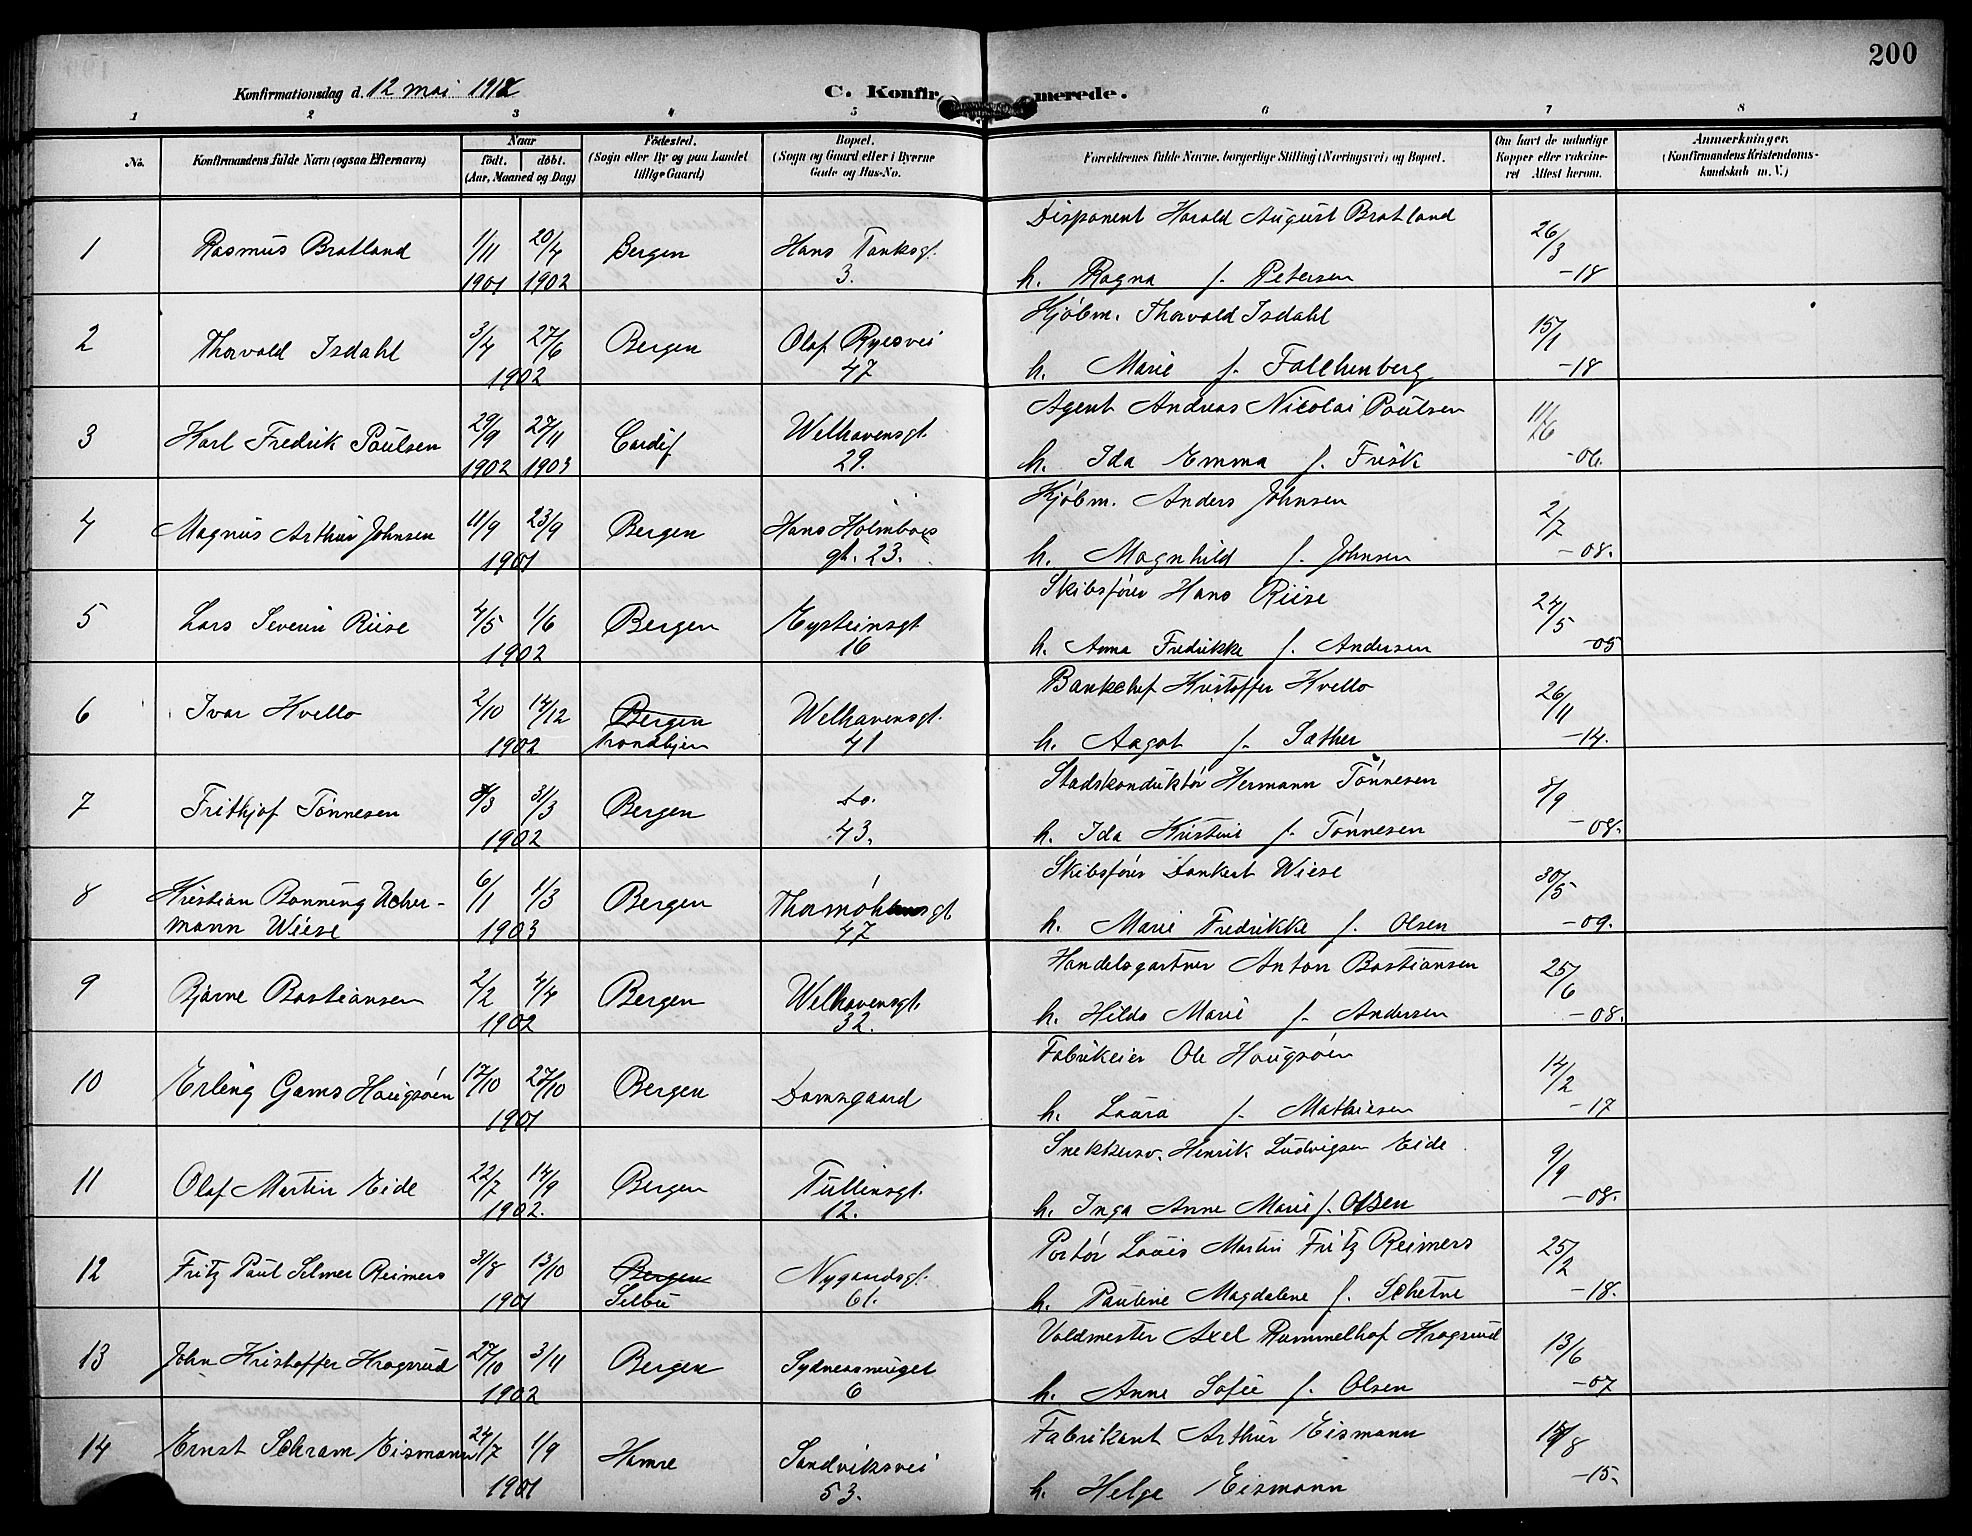 200
Konfirmationsdag d. 12 mai 1918
C. Konfirmerede.
1 2 3 4 5 6 7 8
No.
Konfirmandens fulde Navn (ogsaa Efternavn)
Naar
født. døbt.
(Aar, Maaned og Dag)
Fødested.
(Sogn eller By og paa Landet
tillige Gaard)
Bopæl.
(Sogn og Gaard eller i Byerne
Gade og Hus-No.
Forældrenes fulde Navne, borgerlige Stilling (Næringsvei) og Bopæl.
Om havt de naturlige
Kopper eller vakcine-
ret Attest herom.
Anmærkninger.
(Konfirmandens Kristendoms-
kundskab m. V.)
Disponent Harald August Bratland
1 Rasmus Bratland 1/11 20/4 Bergen Hans Tanksgt. 26/3
1901 1902 3. h. Ragna f. Petersen -18
Kjøbm. Thorvald Isdahl
2 Thorvald Isdahl 3/4 27/6 Bergen Olaf Ryesvei 15/1
1902 47 h. Marie f. Falchenberg -18
Agent Andreas Nicolai Paulsen
3 Karl Fredrik Paulsen 29/9 27/11 Cardif Welhavensgt. 11/6
1902 1903 29. h. Ida Emma f. Frisk -06.
Kjøbm. Anders Johnsen
4 Magnus Arthur Johnsen 11/9 23/9 Bergen Hans Holmboes 2/7
1901 gt. 23. h. Magnhild f. Johnsen -08.
Skibsfører Hans Riise
5 Lars Severin Riise 4/5 1/6 Bergen Eysteinsgt 24/5
1902 16 h. Anna Fredrikke f. Andersen -05
Bankchef Kristoffer Kvello
6 Ivar Kvello 2/10 14/12 Bergen Welhavensgt. 26/11
1902 Trondhjem 41 h. Aagot f. Sæther -14.
Stadskonduktør Hermann Tønnesen
7 Frithjof Tønnesen 8/3 31/3 Bergen Do. 8/9
1902 43. h. Ida Kristine f. Tønnesen -08.
Skibsfører Dankert Wiese
8 Kristian Bonning Ucher- 6/1 1/3 Bergen Thormøhlensgt 30/5
mann Wiese 1903 47 h. Marie Fredrikke f. Olsen -09.
Handelsgartner Anton Bastiansen
9 Bjarne Bastiansen 2/2 4/4 Bergen Welhavensgt. 25/6
1902 32. h. Hilda Marie f. Andersen -08.
Fabrikeier Ole Haugsøen
10 Erling Gams Haugsøen 17/10 27/10 Bergen Damsgaard 14/2
1901 h. Laura f. Mathiesen -17
Snekkersv. Henrik Ludvigsen Eide
11 Olaf Martin Eide 22/7 14/9 Bergen Tullinsgt. 9/9
1902. 12. h. Inga Anne Marie f. Olsen -08.
Portør Louis Martin Fritz Reimers
12 Fritz Paul Selmer Reimers 31/8 13/10 Bergen Nygaardsgt. 25/2
1901 Selbu 61. h. Pauline Magdalene f. Schetne -18.
Voldmester Axel Rummelhof Kragsrud
13 John Kristoffer Kragsrud 27/10 3/11 Bergen Sydnessmuget 13/6
1902 6 h. Anne Sofie f. Olsen -07
Fabrikant Arthur Eismann
14 Ernst Schram Eismann 24/7 1/9 Hamre Sandviksvei
1901 53. h. Helga Eismann -15.